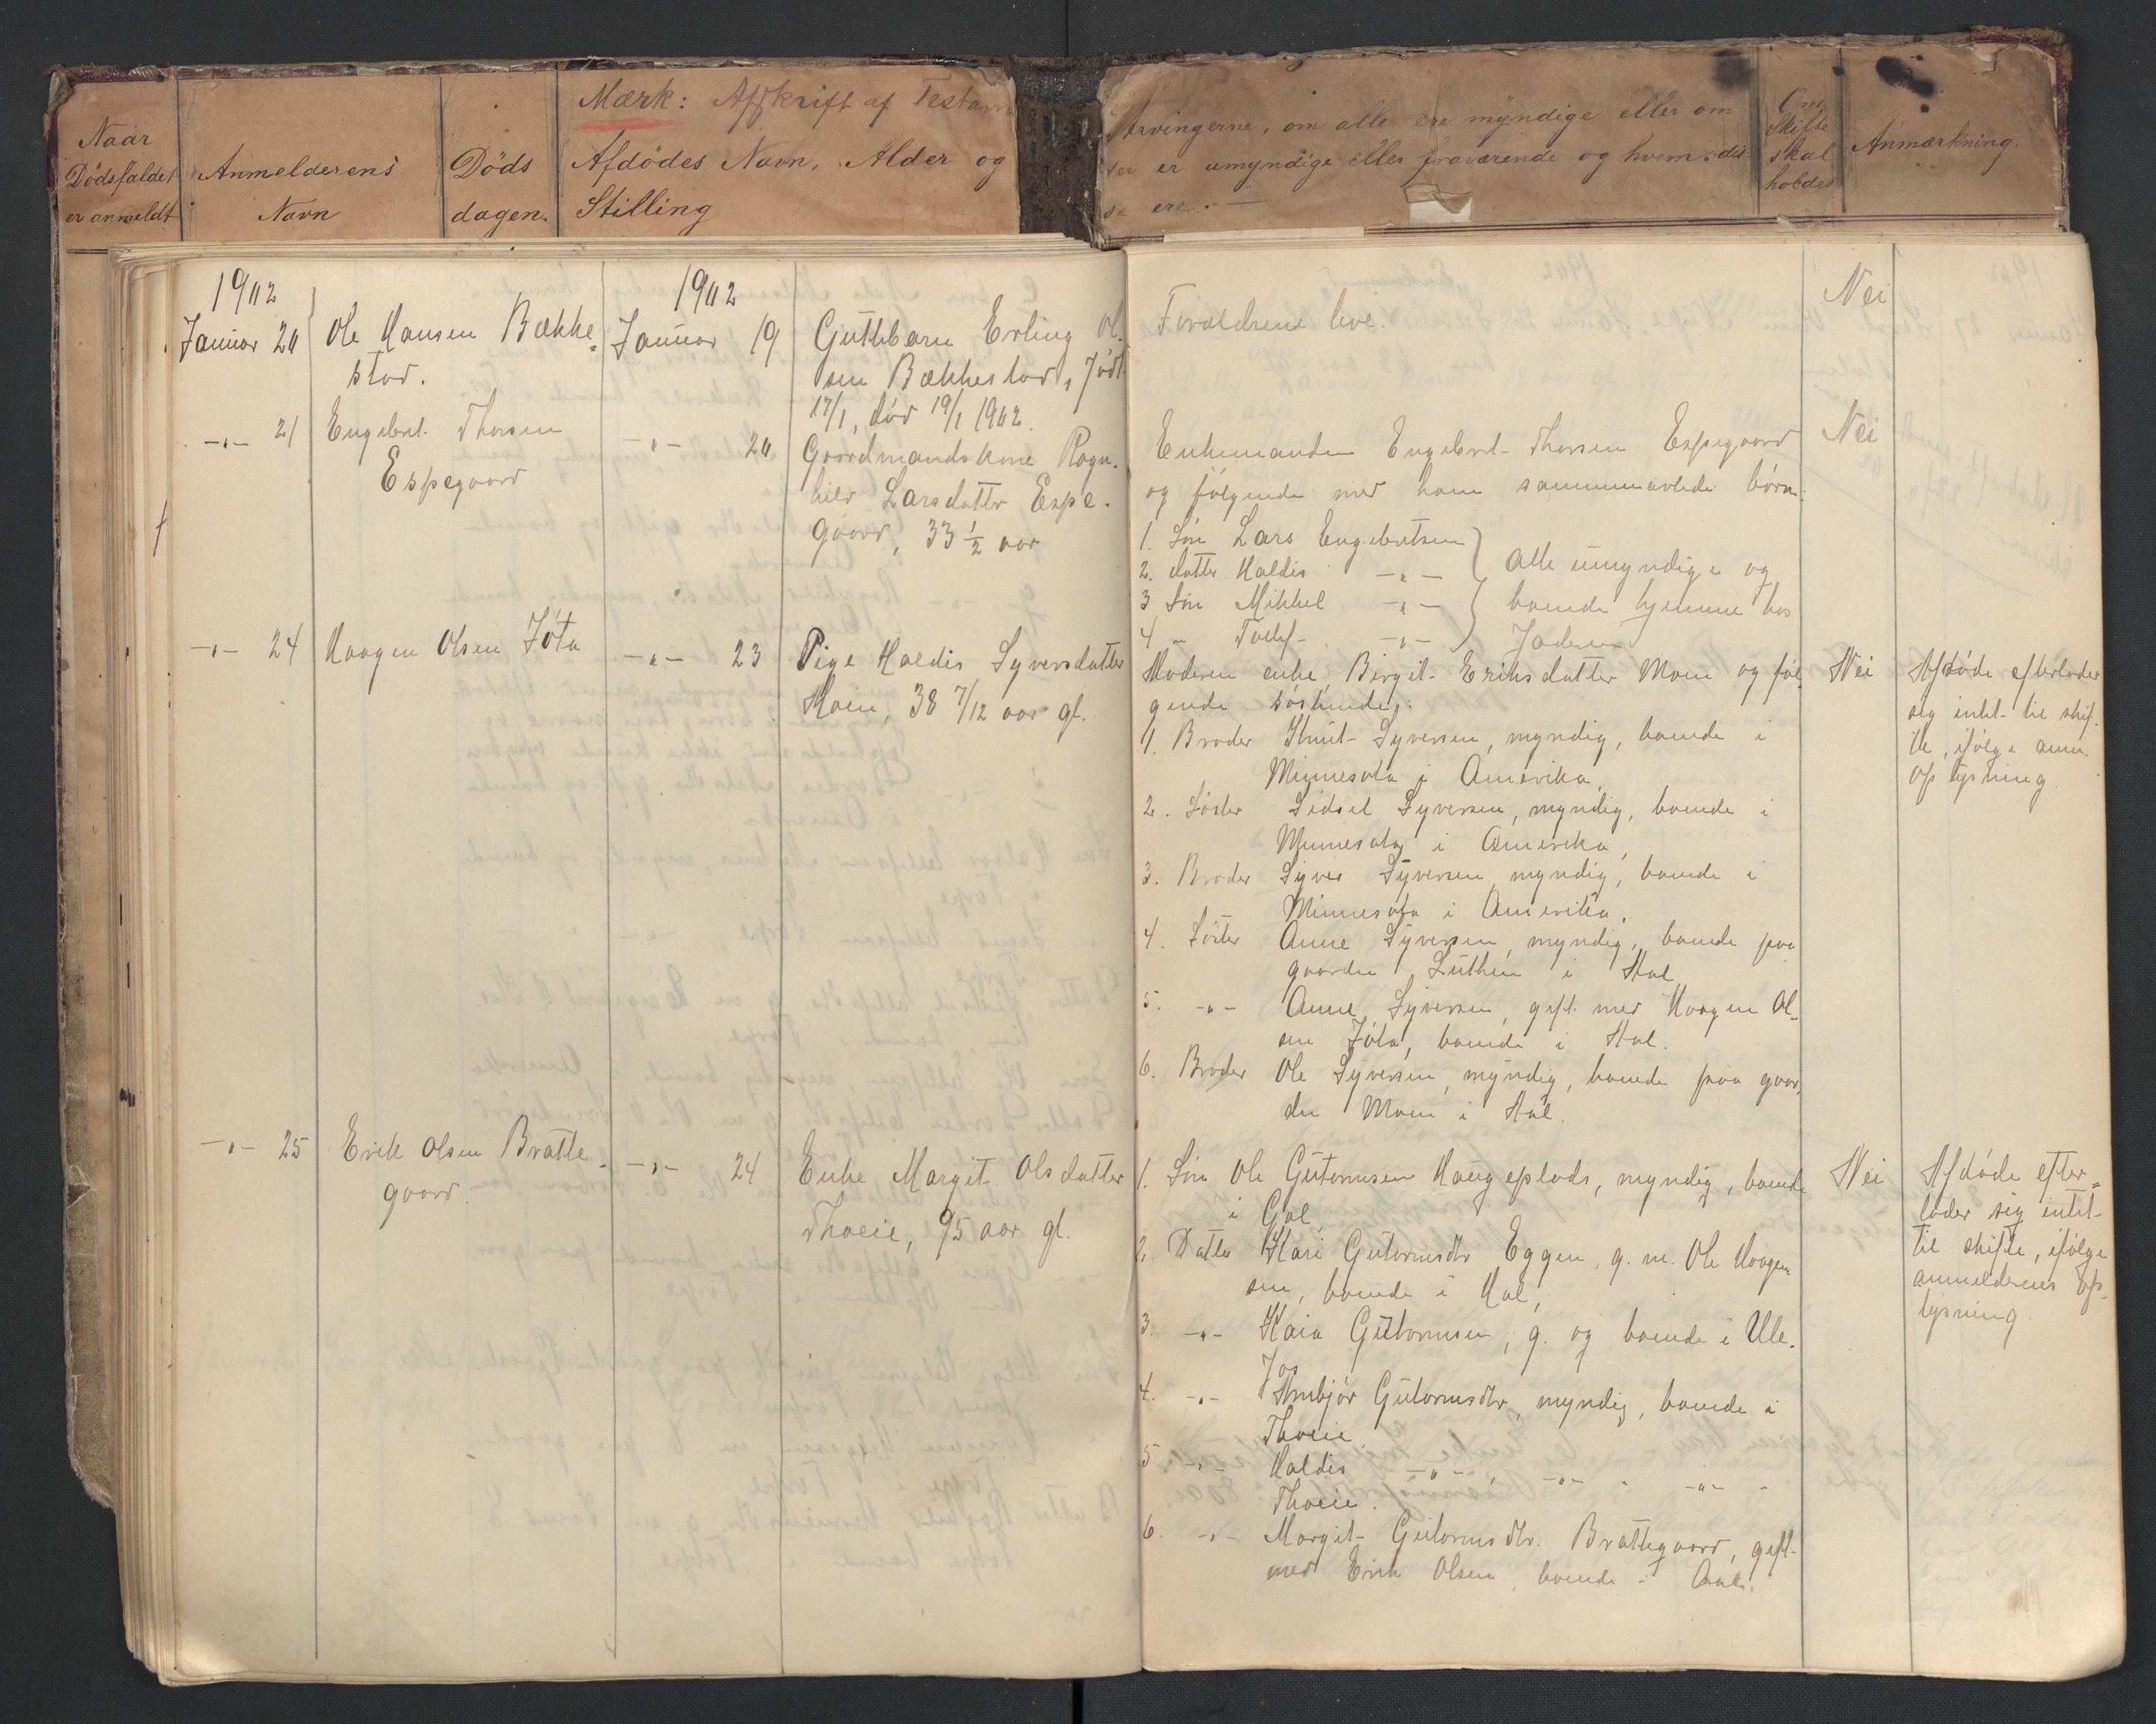 Mærk: Afskrift af Testam
Naar
Dödsfaldet
er anmeldt
Anmelderens
Navn
Döds
dagen.
Afdödes Navn, Alder og
Stilling
Arvingerne, om alle ere myndige eller om
der er umyndige eller fraværende og hvem dis-
se ere.
Om
Skifte
skal
holdes
Anmærkning.
1902
Januar 20
Ole Hansen Bække-
stad.
1902
Januar 19
Guttebarn Erling Ol-
sen Bækkestad, født
17/1, død 19/1 1902.
Forældrene leve.
Nei
-"- 21
Engebret Thorsen
Espegaard
-"- 20
Gaardmandskone Ragn-
hild Larsdatter Espe-
gaard, 33 1/2 aar
Enkemanden Engebret Thorsen Espegaard
og følgende med ham sammenavlede børn:
1. Søn Lars Engebretsen
2. datter Haldis -"-
3 Søn Mikkel -"-
4 " Tollef -"-
alle umyndige og
boende hjemme hos
Faderen
Nei
-"- 24
Haagen Olsen Jøta
-"- 23
Pige Haldis Syversdatter
Moen, 38 7/12 aar gl.
Moderen enke Birgit Eriksdatter Moen og føl-
gende søskende:
1. Broder Knut Syversen, myndig, boende i
Minnesota i Amerika,
2. Søster Sidsel Syversen, myndig, boende i
Minnesota i Amerika,
3. Broder Syver Syversen, myndig, boende i
Minnesota i Amerika,
4. Søster Anne Syversen, myndig, boende paa
gaarden Luthen i Hol,
5. -"- Anne Syversen, gift med Haagen Ol-
sen Jøta, boende i Hol.
6. Broder Ole Syversen, myndig, boende paa gaar-
den Moen i Hol.
Nei
Afdøde efterlader
sig intet til skif-
te, ifølge anm
oplysning.
-"- 25
Erik Olsen Bratte-
gaard.
-"- 24
Enke Margit Olsdatter
Thoeie, 95 aar gl.
1. Søn Ole Gutormsen Haugeplads, myndig, boende
i Gol,
2. Datter Kari Gutormsdtr Eggen, g. m. Ole Haagen-
sen, boende i Hol,
3. -"- Kaia Gutormsen, g. og boende i Ule-
fos
4. -"- Ambjør Gutormsdtr, myndig, boende i
Thoeie,
5 -"- Haldis -"-, -"- -"-
Thoeie.
6. -"- Margit Gutormsdtr. Brattegaard, gift
med Erik Olsen, boende i Aal.
Nei
Afdøde efter-
lader sig intet
til skifte, ifølge
anmelderens op-
lysning.